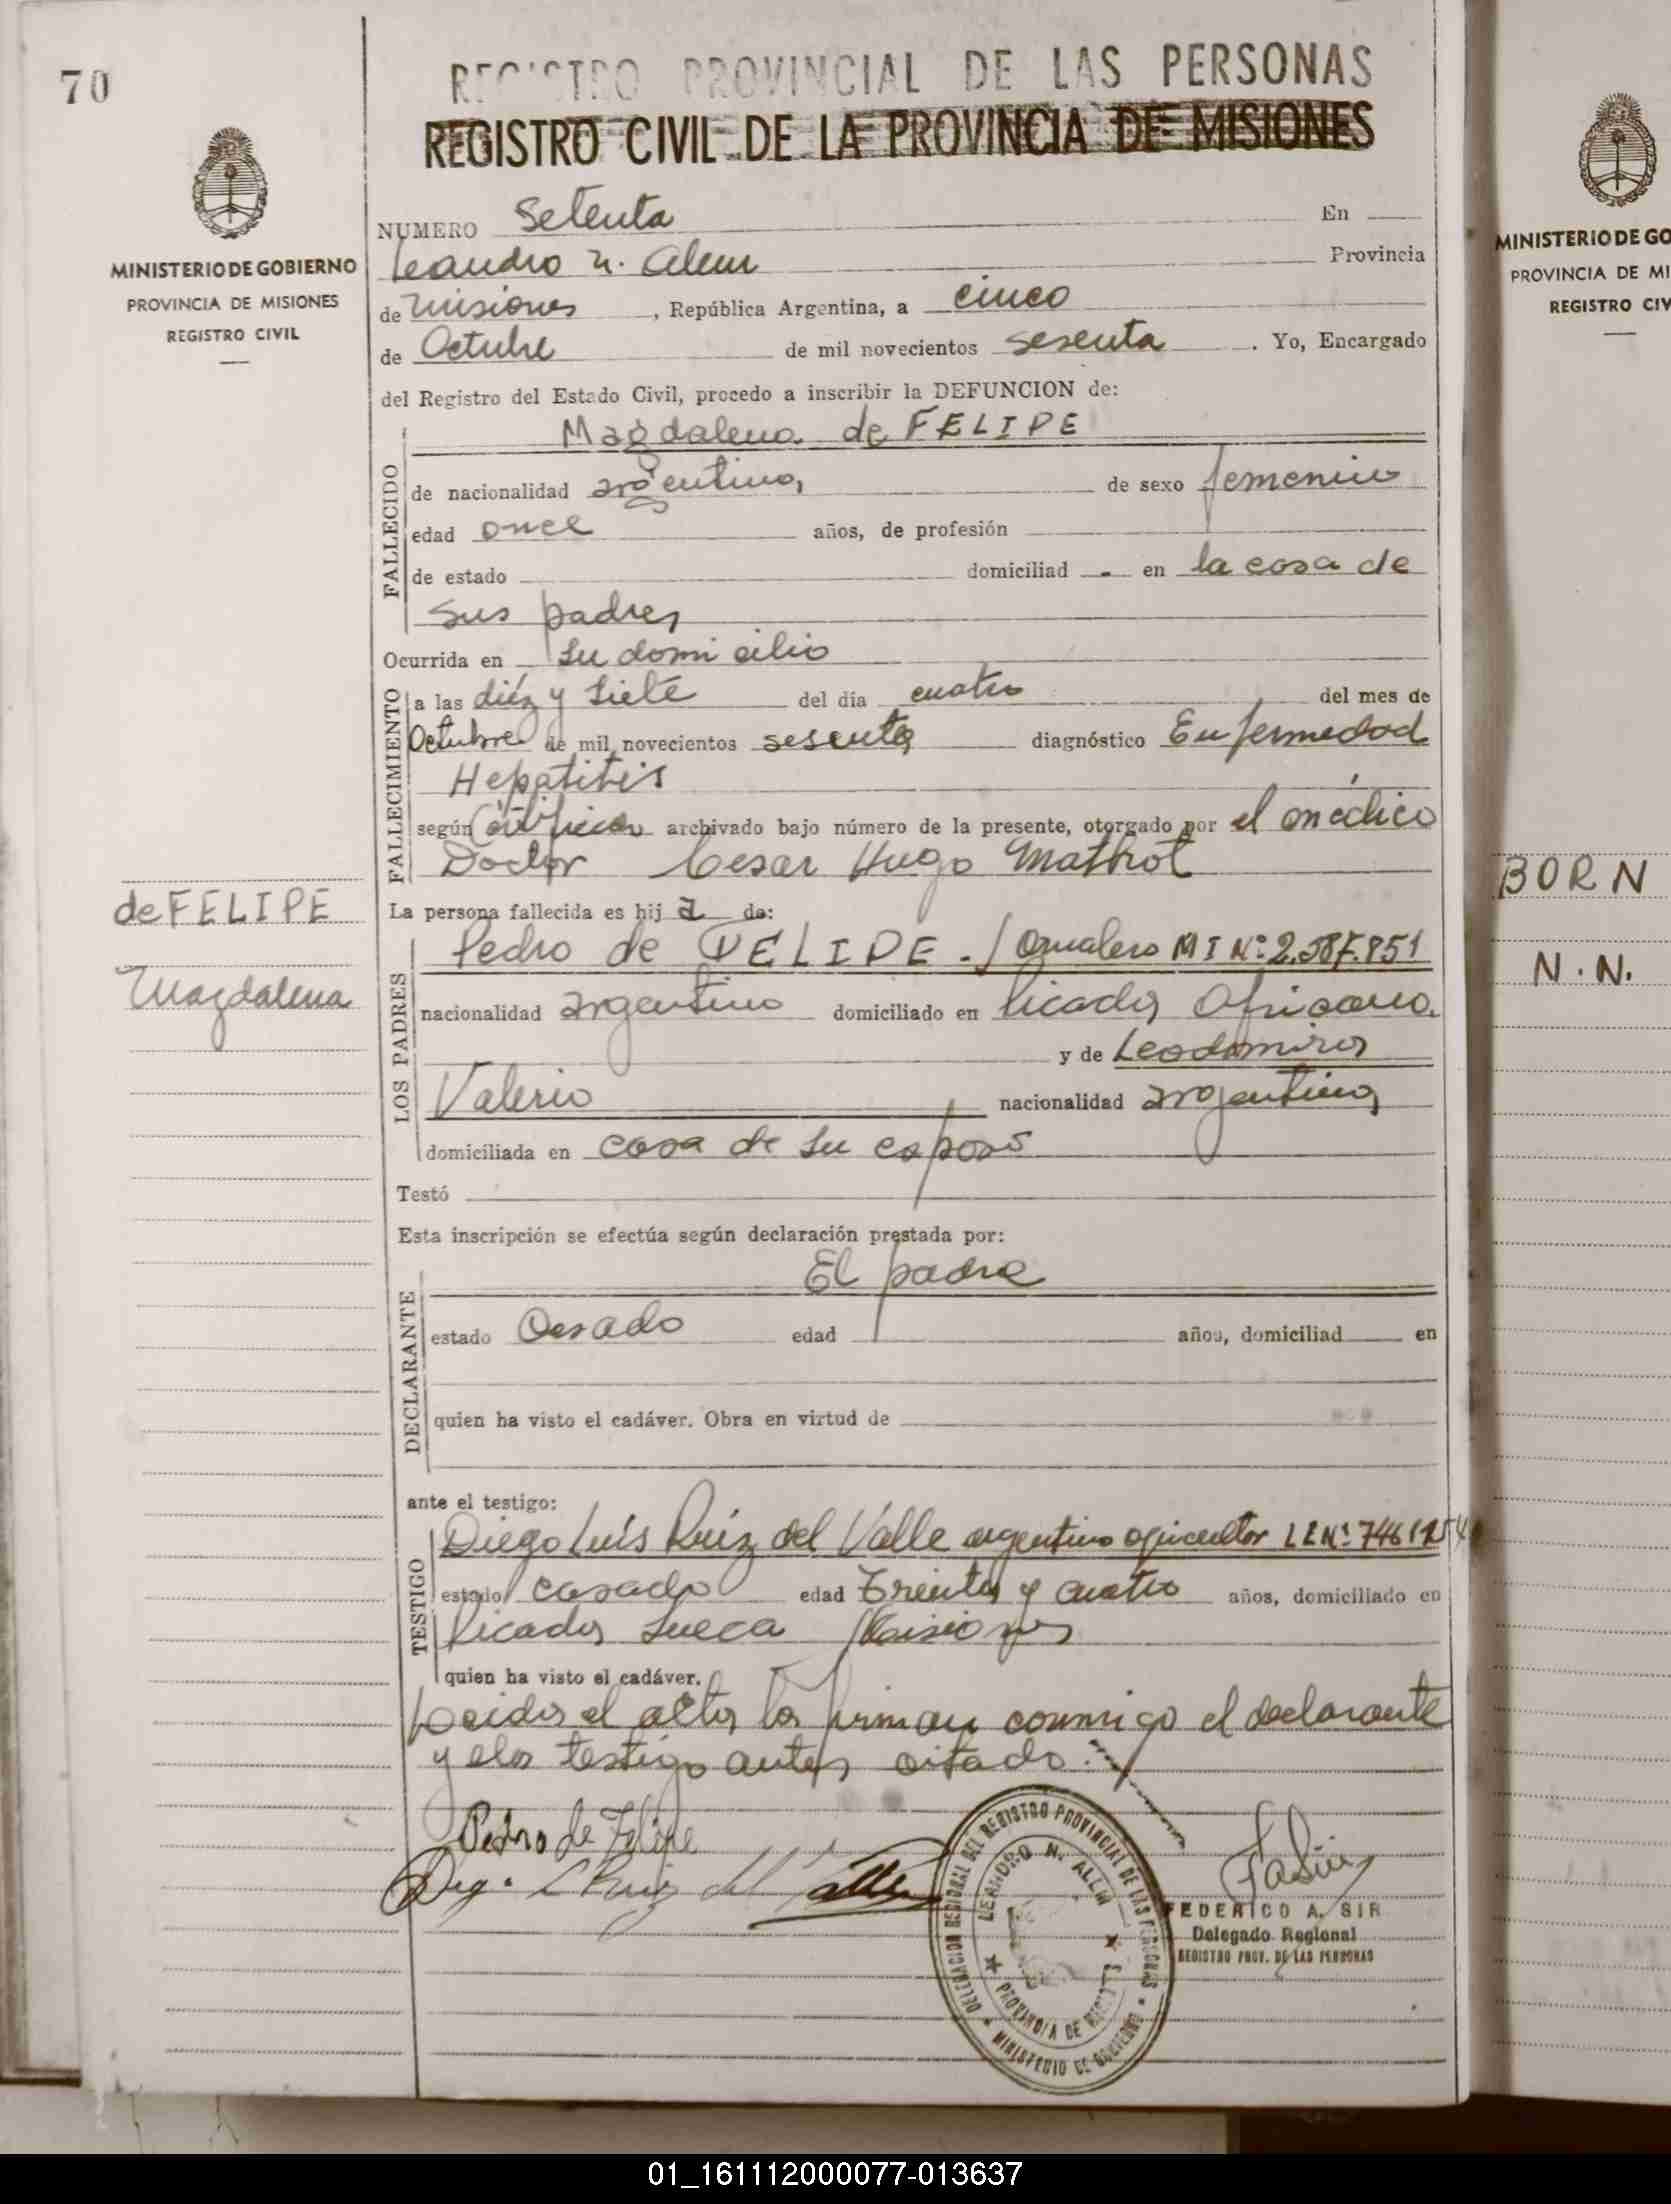 70
REGISTRO PROVINCIAL DE LAS PERSONAS
REGISTRO CIVIL DE LA PROVINCIA DE MISIONES
MINISTERIO DE GOBIERNO
PROVINCIA DE MISIONES
REGISTRO CIVIL
NUMERO Setenta En
Leandro N. Alem Provincia
de Misiones, República Argentina, a cinco
de Octubre de mil novecientos sesenta. Yo, Encargado
del Registro del Estado Civil, procedo a inscribir la DEFUNCION de:
FALLECIDO
Magdalena de FELIPE
de nacionalidad argentina, de sexo femenino
edad once años, de profesión
de estado domiciliad - en la casa de
sus padres
Ocurrida en su domicilio
FALLECIMIENTO
a las diéz y siete del día cuatro del mes de
Octubre de mil novecientos sesenta diagnóstico Enfermedad
Hepatitis
según archivado bajo número de la presente, otorgado por el médico
Doctor Cesar Hugo Mathot
de FELIPE
Magdalena
La persona fallecida es hija de:
LOS PADRES
Pedro de FELIPE -/ MI Nº 2.587.851
nacionalidad argentino domiciliado en Picada
y de Leodomira
Valerio nacionalidad argentina
domiciliada en casa de su esposo
Testó
Esta inscripción se efectúa según declaración prestada por:
DECLARANTE
El padre
estado Casado edad años, domiciliad en
quien ha visto el cadáver. Obra en virtud de
ante el testigo:
TESTIGO
Diego Luís Ruíz del Valle argentino agricultor LE Nº
estado casado edad treinta y cuatro años, domiciliado en
Picada Sueca Misiones
quien ha visto el cadáver.
Leida el acta la firman conmigo el declarante
y el testigo antes citado.
Pedro de Felipe
L Ruiz del Valle
DELEGACION REGIONAL DEL REGISTRO PROVINCIAL DE LAS PERSONAS
LEANDRO N. ALEM
PROVINCIA DE MISIONES
MINISTERIO DE GOBIERNO
FEDERICO A. SIR
Delegado Regional
REGISTRO PROV. DE LAS PERSONAS
MINISTERIO DE GO
PROVINCIA DE MI
REGISTRO CIV
BORN
N.N.
01_161112000077-013637